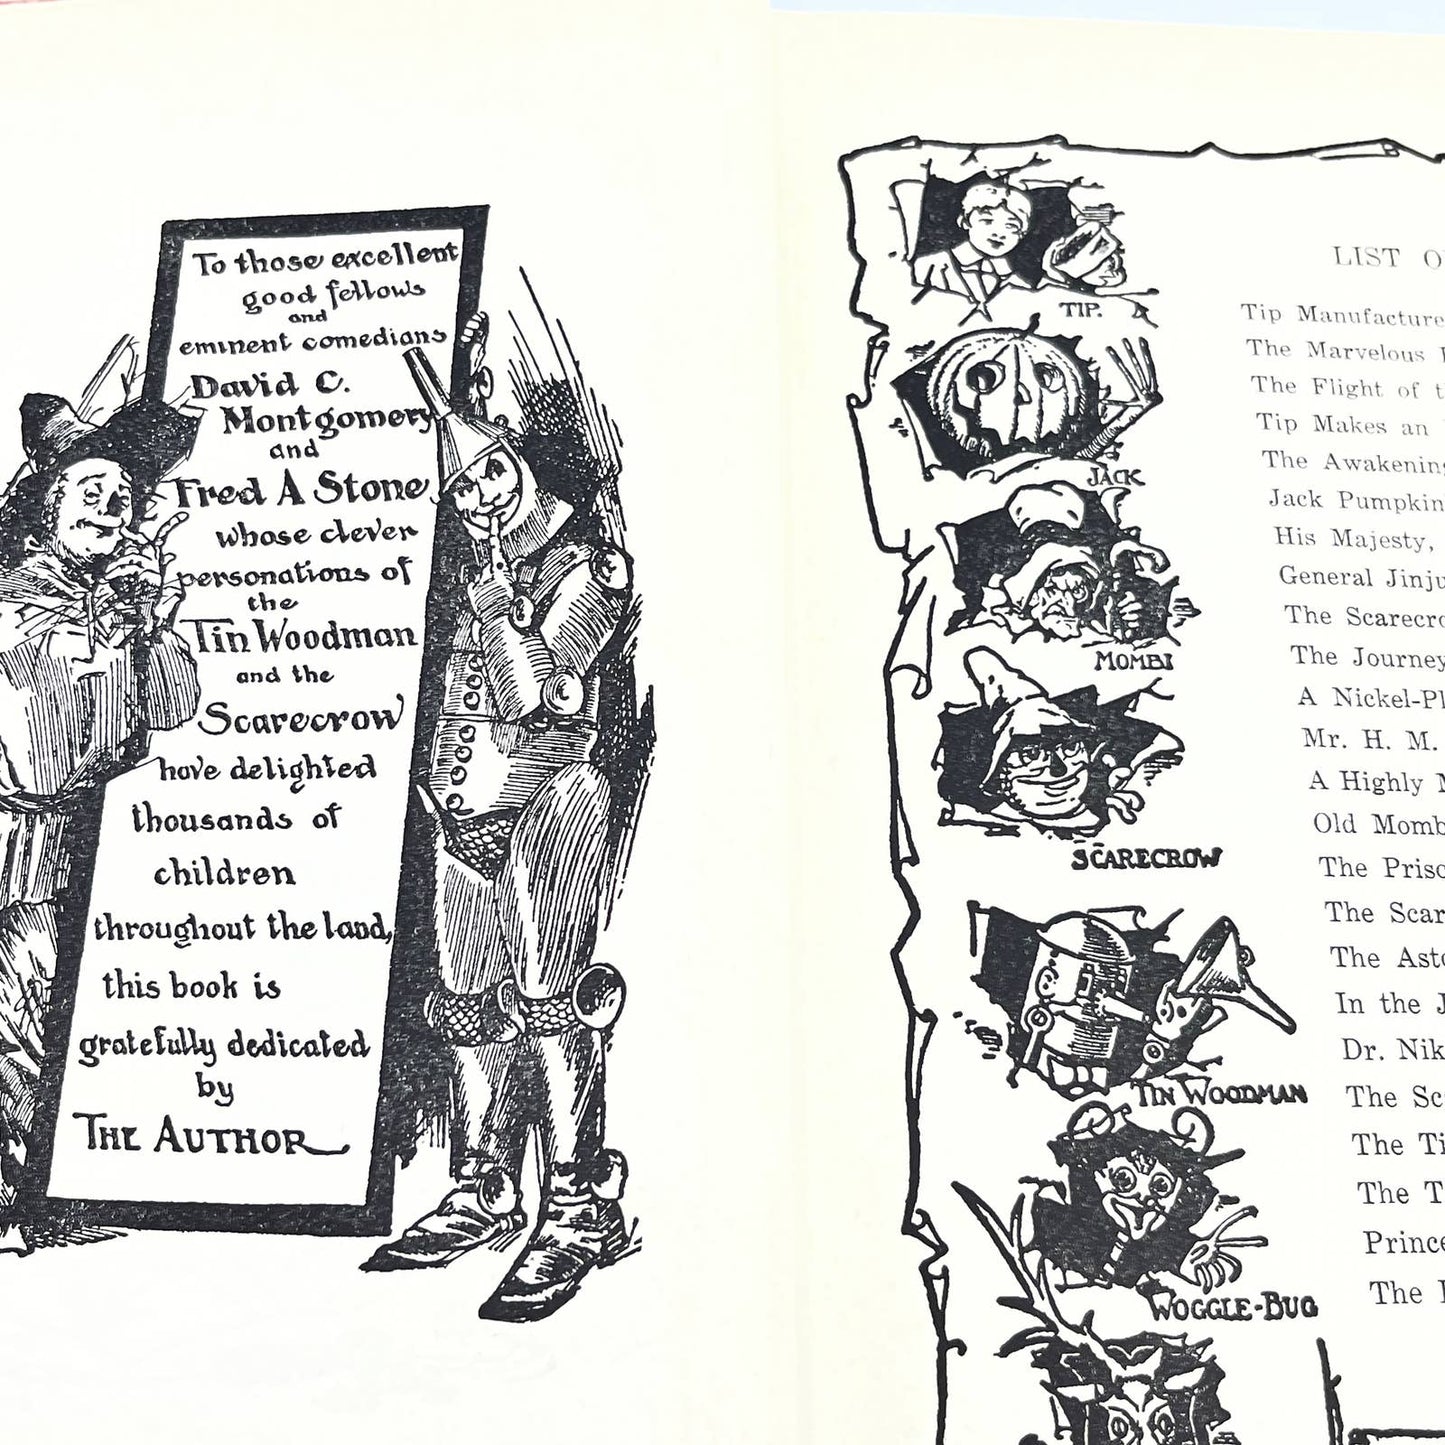 To those excellent
good fellows
and
eminent comedians
David C.
Montgomery
and
Fred A Stone
whose clever
personations of
the
Tin Woodman
and the
Scarecrow
have delighted
thousands of
children
throughout the land,
this book is
gratefully dedicated
by
THE AUTHOR
TIP.
JACK
MOMBI
SCARECROW
TIN WOODMAN
WOGGLE-BUG
LIST
Tip Manufacture
The Marvelous
The Flight of
Tip Makes an
The Awakening
Jack Pumpkin
His Majesty,
General Jinju
The Scarecro
The Journey
A Nickel-Pl
Mr. H. M.
A Highly M
Old Momb
The Priso
The Scar
The Asto
In the J
Dr. Nik
The Sc
The Ti
The T
Prince
The